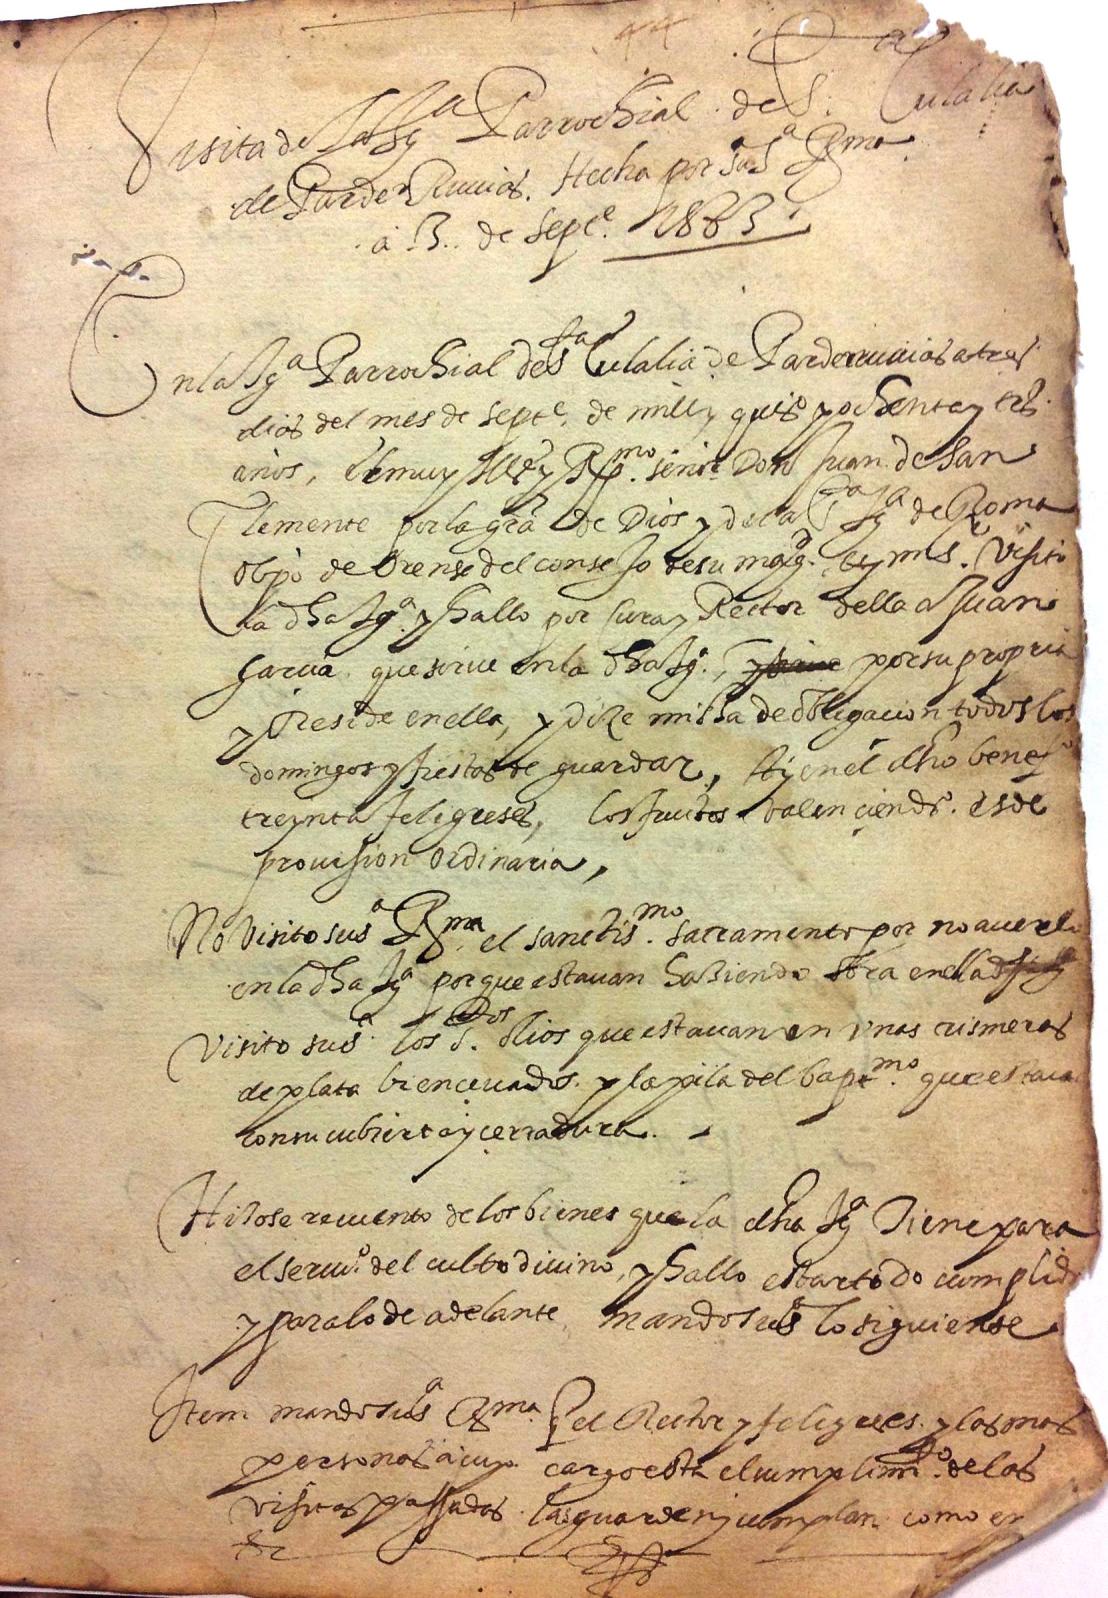 44
Visita de la Ygª Parrochial de Sª Eulalia
de Parderruuias. Hecha por su Sª Rma
a 3. de Septe. 1583.
En la Ygª Parrochial de Sta Eulalia de Parderruuias a tres
dias del mes de Septe. de mill y quiſs y ochenta y tres
años, El muy Ille y Rmo. señor Don Juan de San
Clemente por la gra de Dios y de la Sta Ygª de Roma
obpo de Orense del consejo de su magd. Visito
la dha Ygª y hallo por Cura y Rector della a Juan
garcia que sirue en la dha Yga., por su propria
y Reside en ella, y dize missa de obligacion todos los
domingos y fiestas de guardar, Ay en el dho benefº
treynta feligreses, los fructos valen cient ds. es de
prouission ordinaria,
No Visito su Sª Rma. el sanctiss.mo Sacramento por no auerlo
en la dha Ygª porque estauan haziendo obra en ella
Visito su Sª los Stos. Olios que estauan en vnas crismeras
de plata bien ceuados. y la pila del bapt.mo que estaua
con su cubierta y cerradura.
Hizose recuento de los bienes que la dha Ygª Tiene para
el seruº. del culto diuino, y hallo estar todo cumplido
y para lo de adelante mando su Sª lo siguiente
Item mando su Sª Rma. q el Rector y feligreses. y las mas
personas a cuyo cargo esta el cumplimto. de las
visitas passadas las guarden y cumplan como en